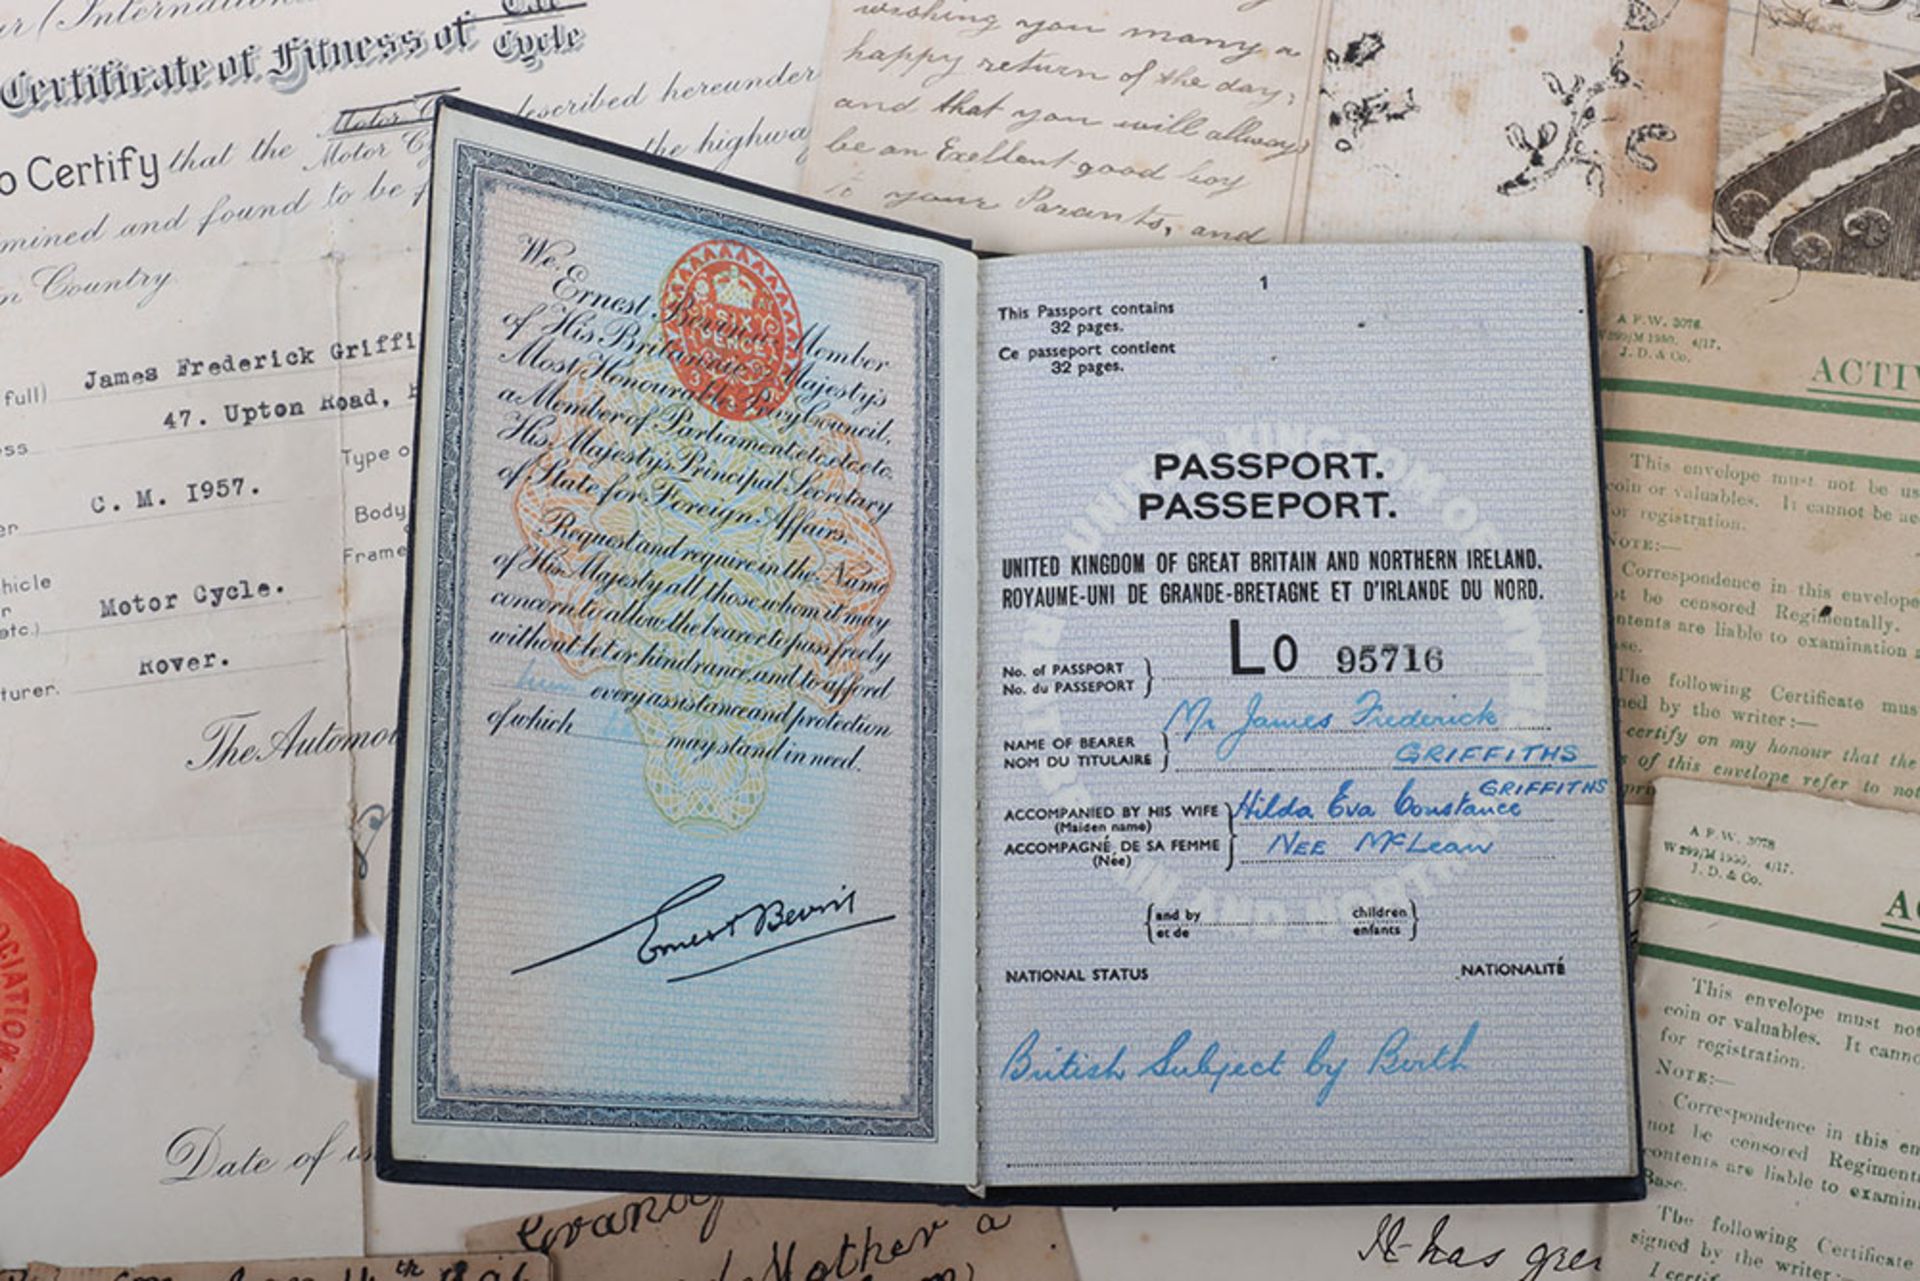 (Internation
Certificate of Fitness of Cycle
o Certify that the Motor described hereunder
Motor the highwa
mined and found to be
n Country.
full) James Frederick Griffi
ss 47. Upton Road,
Type o
C. M. I957.
Body
Frame
hicle
etc.) Motor Cycle.
Rover.
turer.
The Automo
Date of
OCIATION
wishing you many a
happy return of the day,
and that you will allways
be an Exellent good boy
to your Parants, and
We Ernest Bevin, Member
of His Britannic Majesty's
Most Honourable Privy Council,
a Member of Parliament etc. etc. etc.
His Majesty's Principal Secretary
of State for Foreign Affairs,
Request and require in the Name
of His Majesty all those whom it may
concern to allow the bearer to pass freely
without let or hindrance, and to afford
him every assistance and protection
of which he may stand in need.
SIX
PENCE
Ernest Bevin
1
This Passport contains
32 pages.
Ce passeport contient
32 pages.
PASSPORT.
PASSEPORT.
UNITED KINGDOM OF GREAT BRITAIN AND NORTHERN IRELAND.
ROYAUME-UNI DE GRANDE-BRETAGNE ET D'IRLANDE DU NORD.
No. of PASSPORT LO 95716
No. du PASSEPORT
Mr James Frederick
NAME OF BEARER
NOM DU TITULAIRE GRIFFITHS
GRIFFITHS
ACCOMPANIED BY HIS WIFE Hilda Eva Constance
(Maiden name)
ACCOMPAGNÉ DE SA FEMME NEE McLean
(Née)
and by children
et de enfants
NATIONAL STATUS NATIONALITÉ
British Subject by Birth
A F.W. 3078.
J. D. & Co.
ACTIV
This envelope must not be us
coin or valuables. It cannot be ac
or registration.
NOTE:—
Correspondence in this envelope
t be censored Regimentally.
ntents are liable to examination a
se.
The following Certificate mus
ned by the writer:—
certify on my honour that the
s of this envelope refer to not
A F.W. 3078
W 299/M 1930. 4/17.
J. D. & Co.
AC
This envelope must not
coin or valuables. It canno
for registration.
NOTE:—
Correspondence in this en
not be censored Regimenta
contents are liable to examin
Base.
The following Certificate
signed by the writer:
I certif
Mother a
It has gre